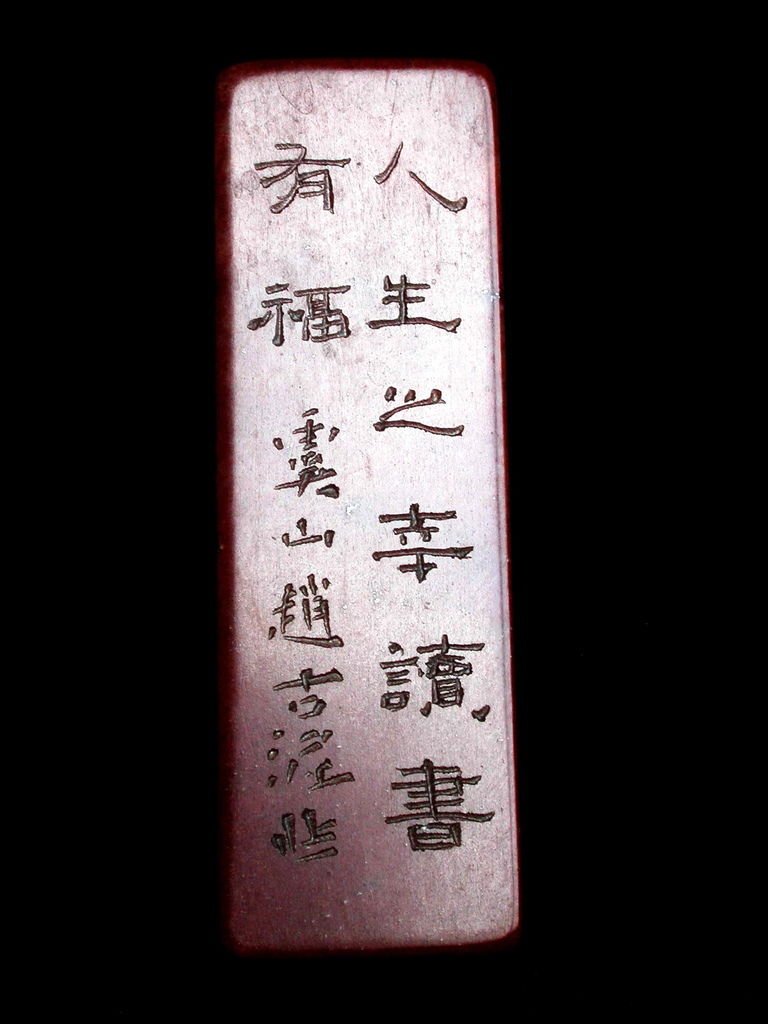 人生之幸讀書
有福 虞山趙古泥作